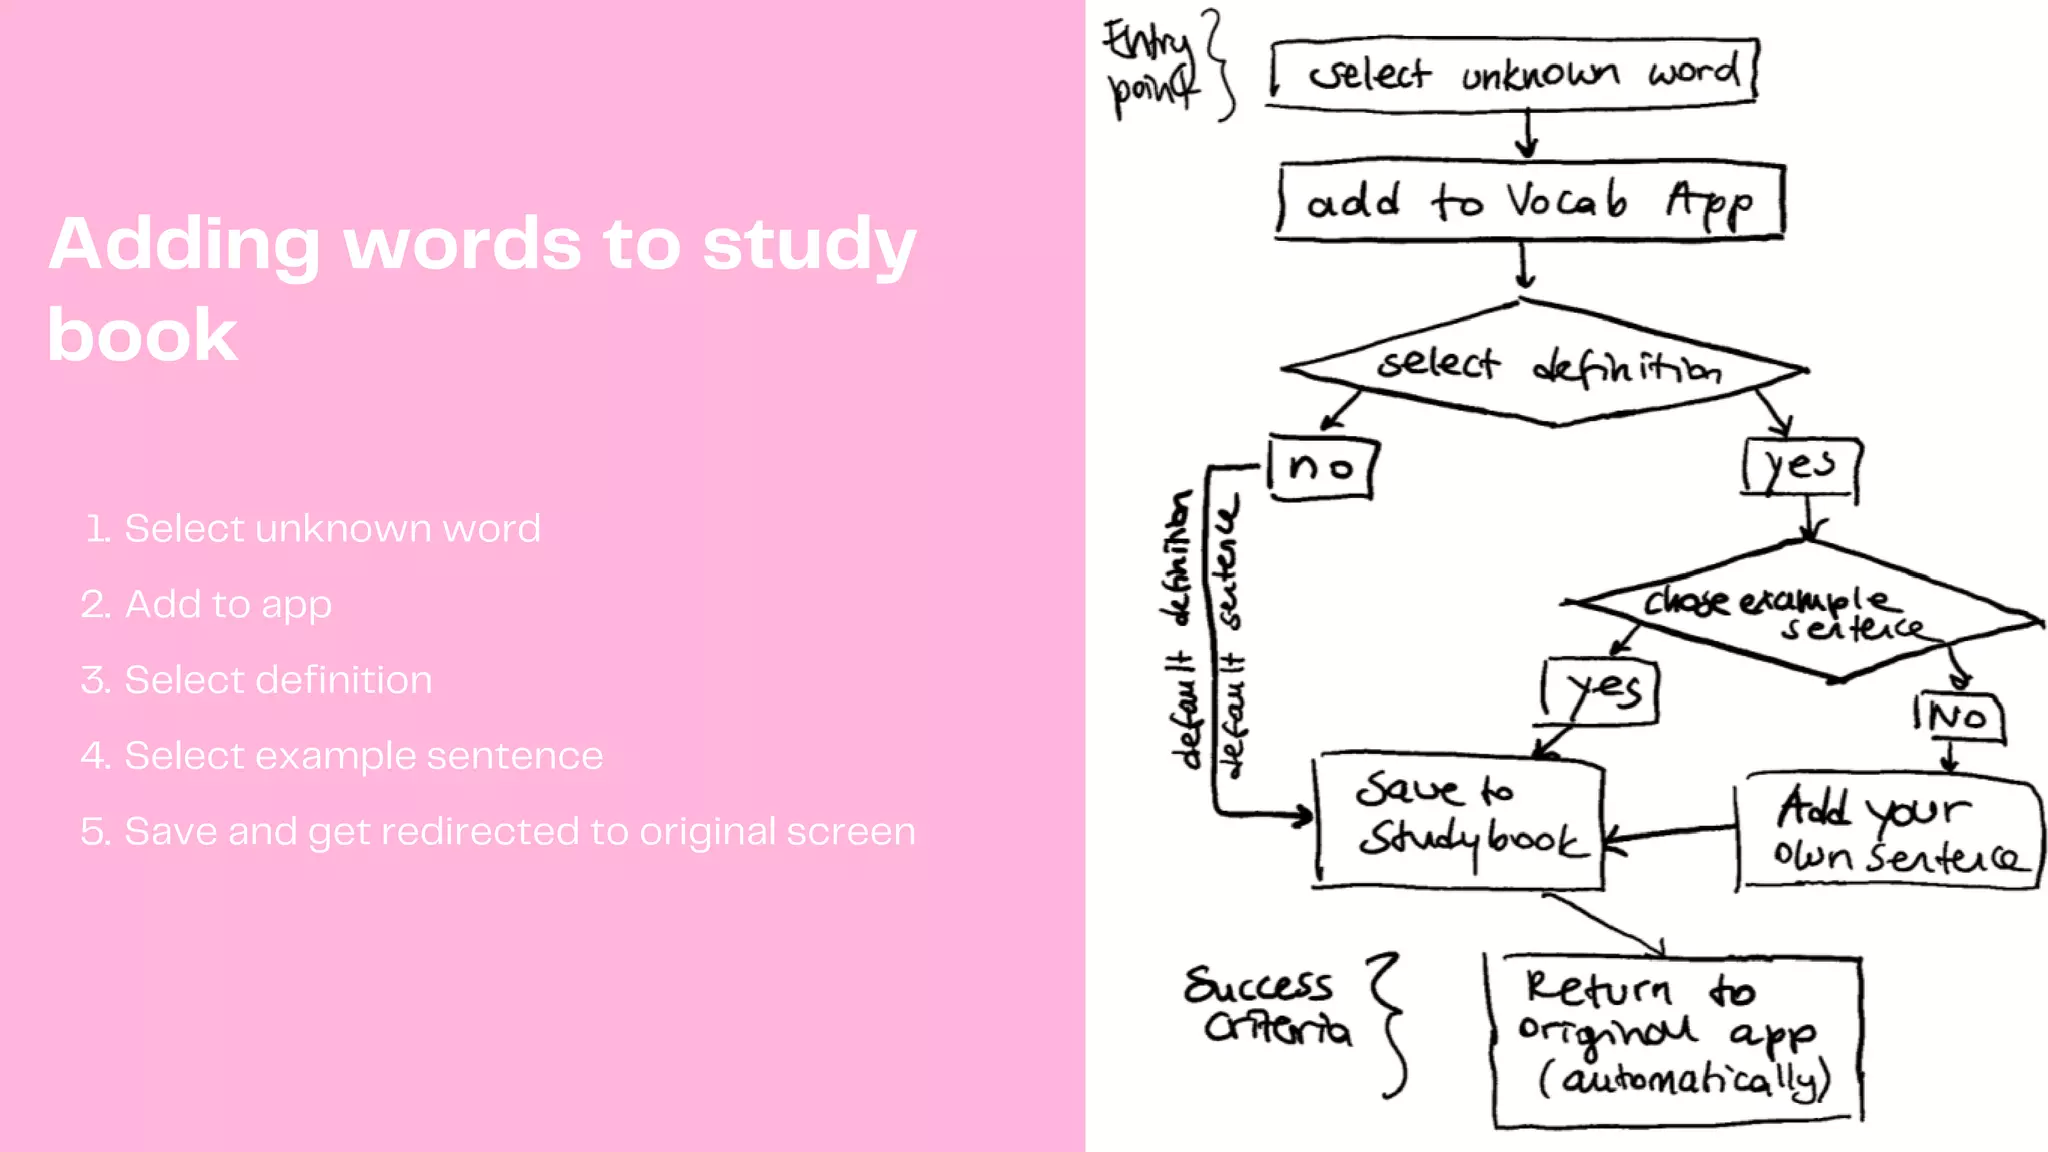 Adding words to study
book
1. Select unknown word
2. Add to app
3. Select definition
4. Select example sentence
5. Save and get redirected to original screen
Entry
point
select unknown word
add to Vocab App
select definition
no
yes
default definition
default sentence
chose example
sentence
yes
No
Save to
Studybook
Add your
own sentence
Success
Criteria
Return to
original app
(automatically)